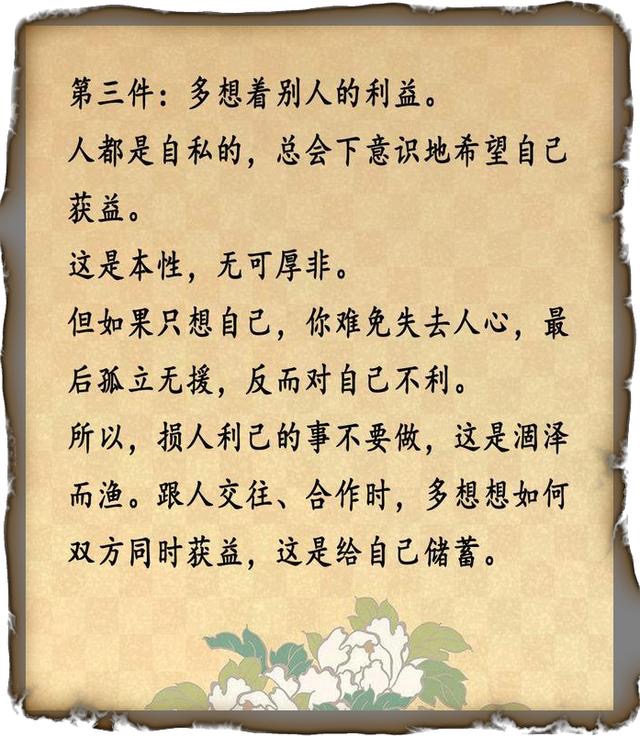 第三件：多想着别人的利益。
人都是自私的，总会下意识地希望自己
获益。
这是本性，无可厚非。
但如果只想自己，你难免失去人心，最
后孤立无援，反而对自己不利。
所以，损人利己的事不要做，这是涸泽
而渔。跟人交往、合作时，多想想如何
双方同时获益，这是给自己储蓄。